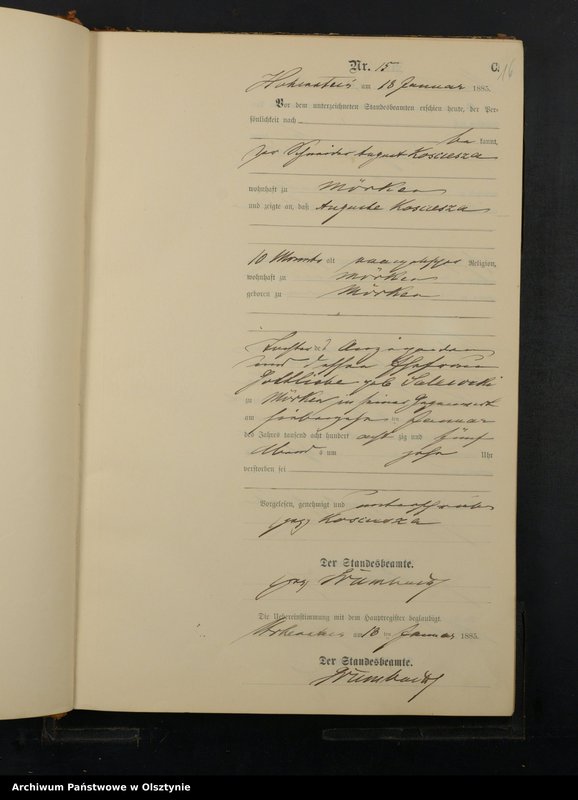 Nr. 15
C.
16
Hohenstein am 18 Januar 1885.
Vor dem unterzeichneten Standesbeamten erschien heute, der Per-
sönlichkeit nach
be kannt,
der Schneider August Kosciesza
wohnhaft zu Mörken
und zeigte an, daß Auguste Kosciesza
10 Monate alt evangelischer Religion,
wohnhaft zu Mörken
geboren zu Mörken
Tochter des Anzeigenden
und dessen Ehefrau
Gottliebe geb
zu Mörken in seiner Gegenwart
am siebzehn ten Januar
des Jahres tausend acht hundert acht zig und fünf
Abend s um zehn Uhr
verstorben sei
Vorgelesen, genehmigt und unterschrieben
gez Kosciesza
Der Standesbeamte.
gez
Die Uebereinstimmung mit dem Hauptregister beglaubigt.
Hohenstein am 18 ten Januar 1885.
Der Standesbeamte.
Archiwum Państwowe w Olsztynie